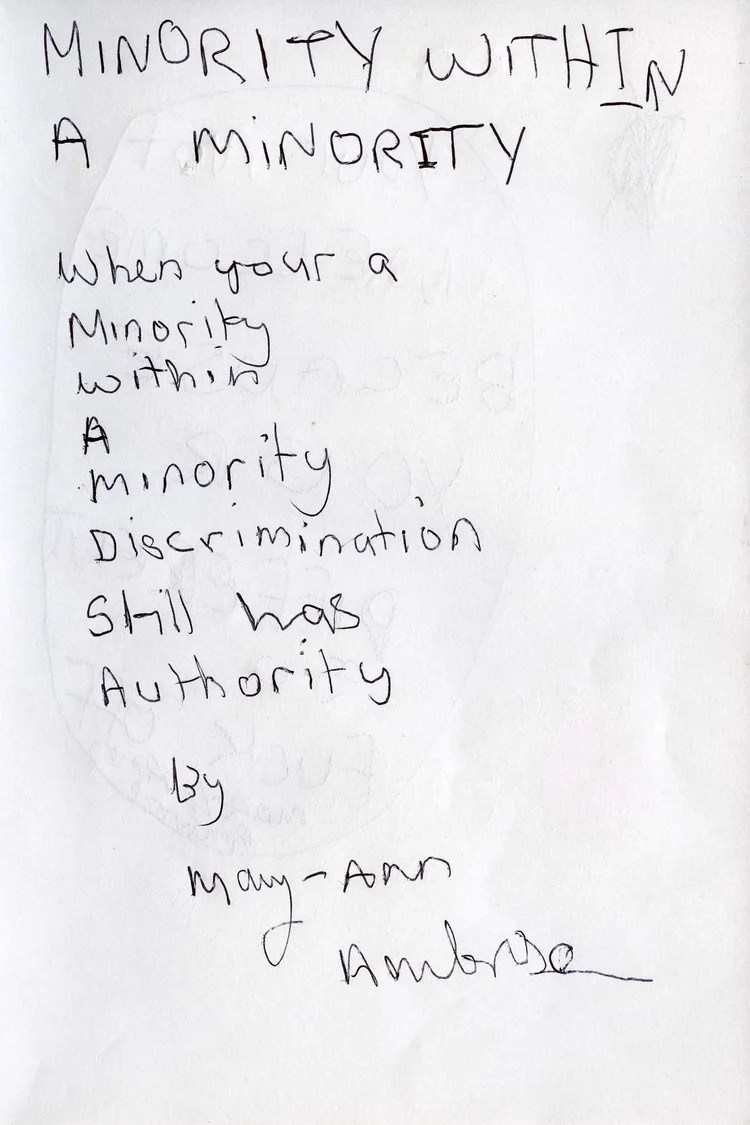 MINORITY WITHIN
A MINORITY
When your a
Minority
within
A
minority
Discrimination
Still has
Authority
By
Mary-Ann
Ambrose